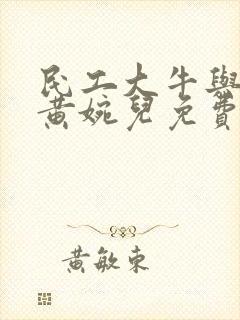 民工大牛與
黃婉兒免費
黃敏東